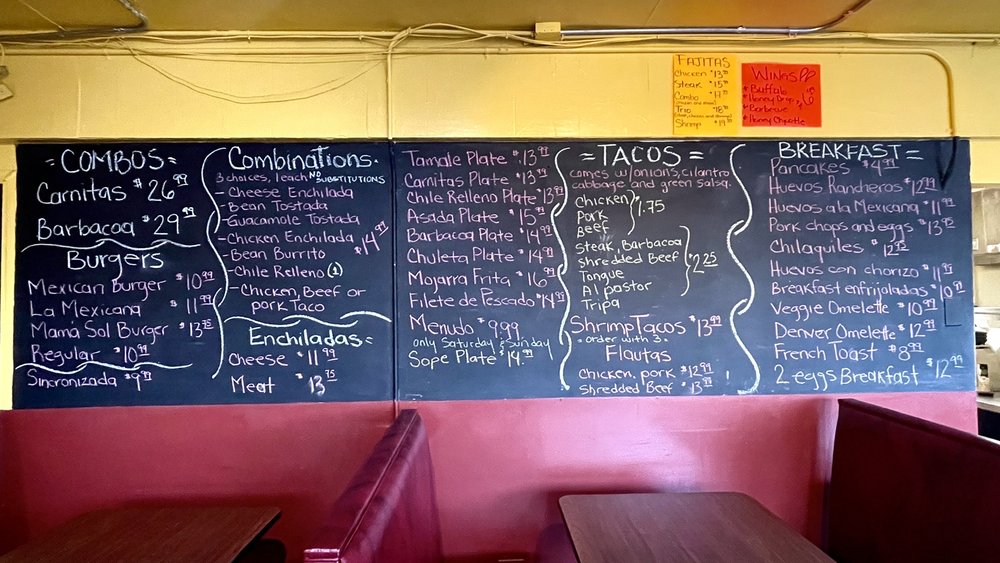 FAJITAS
Chicken $13.99
Steak $15.99
Combo $17.75
Trio $18.99
Shrimp $19.99
WINGS
* Buffalo
* Honey Drop
* Barbecue
* Honey Chipotle
= COMBOS =
Carnitas $26.99
Barbacoa $29.99
Burgers
Mexican Burger $10.99
La Mexicana $11.99
Mamá Sol Burger $13.25
Regular $10.99
Sincronizada $9.99
Combinations.
3 choices, 1 each NO SUBSTITUTIONS
- Cheese Enchilada
- Bean Tostada
- Guacamole Tostada
- Chicken Enchilada
- Bean Burrito
- Chile Relleno (1)
- Chicken, Beef or
pork Taco
$14.99
Enchiladas=
Cheese $11.99
Meat $13.75
Tamale Plate $13.99
Carnitas Plate $13.99
Chile Relleno Plate $13.99
Asada Plate $15.99
Barbacoa Plate $14.99
Chuleta Plate $14.99
Mojarra Frita $16.99
Filete de Pescado $14.99
Menudo $9.99
only Saturday & Sunday
Sope Plate $14.99
= TACOS =
comes w/onions, cilantro
cabbage and green salsa.
Chicken
Pork
Beef
$1.75
Steak, Barbacoa
Shredded Beef
Tongue
Al pastor
Tripa
$2.25
Shrimp Tacos $13.99
- order with 3 -
Flautas
Chicken, pork $12.99
Shredded Beef $13.99
BREAKFAST=
Pancakes $4.99
Huevos Rancheros $12.99
Huevos a la Mexicana $11.99
Pork chops and eggs $13.95
Chilaquiles $12.35
Huevos con chorizo $11.95
Breakfast enfrijoladas $10.99
Veggie Omelette $10.99
Denver Omelette $12.99
French Toast $8.99
2 eggs Breakfast $12.99